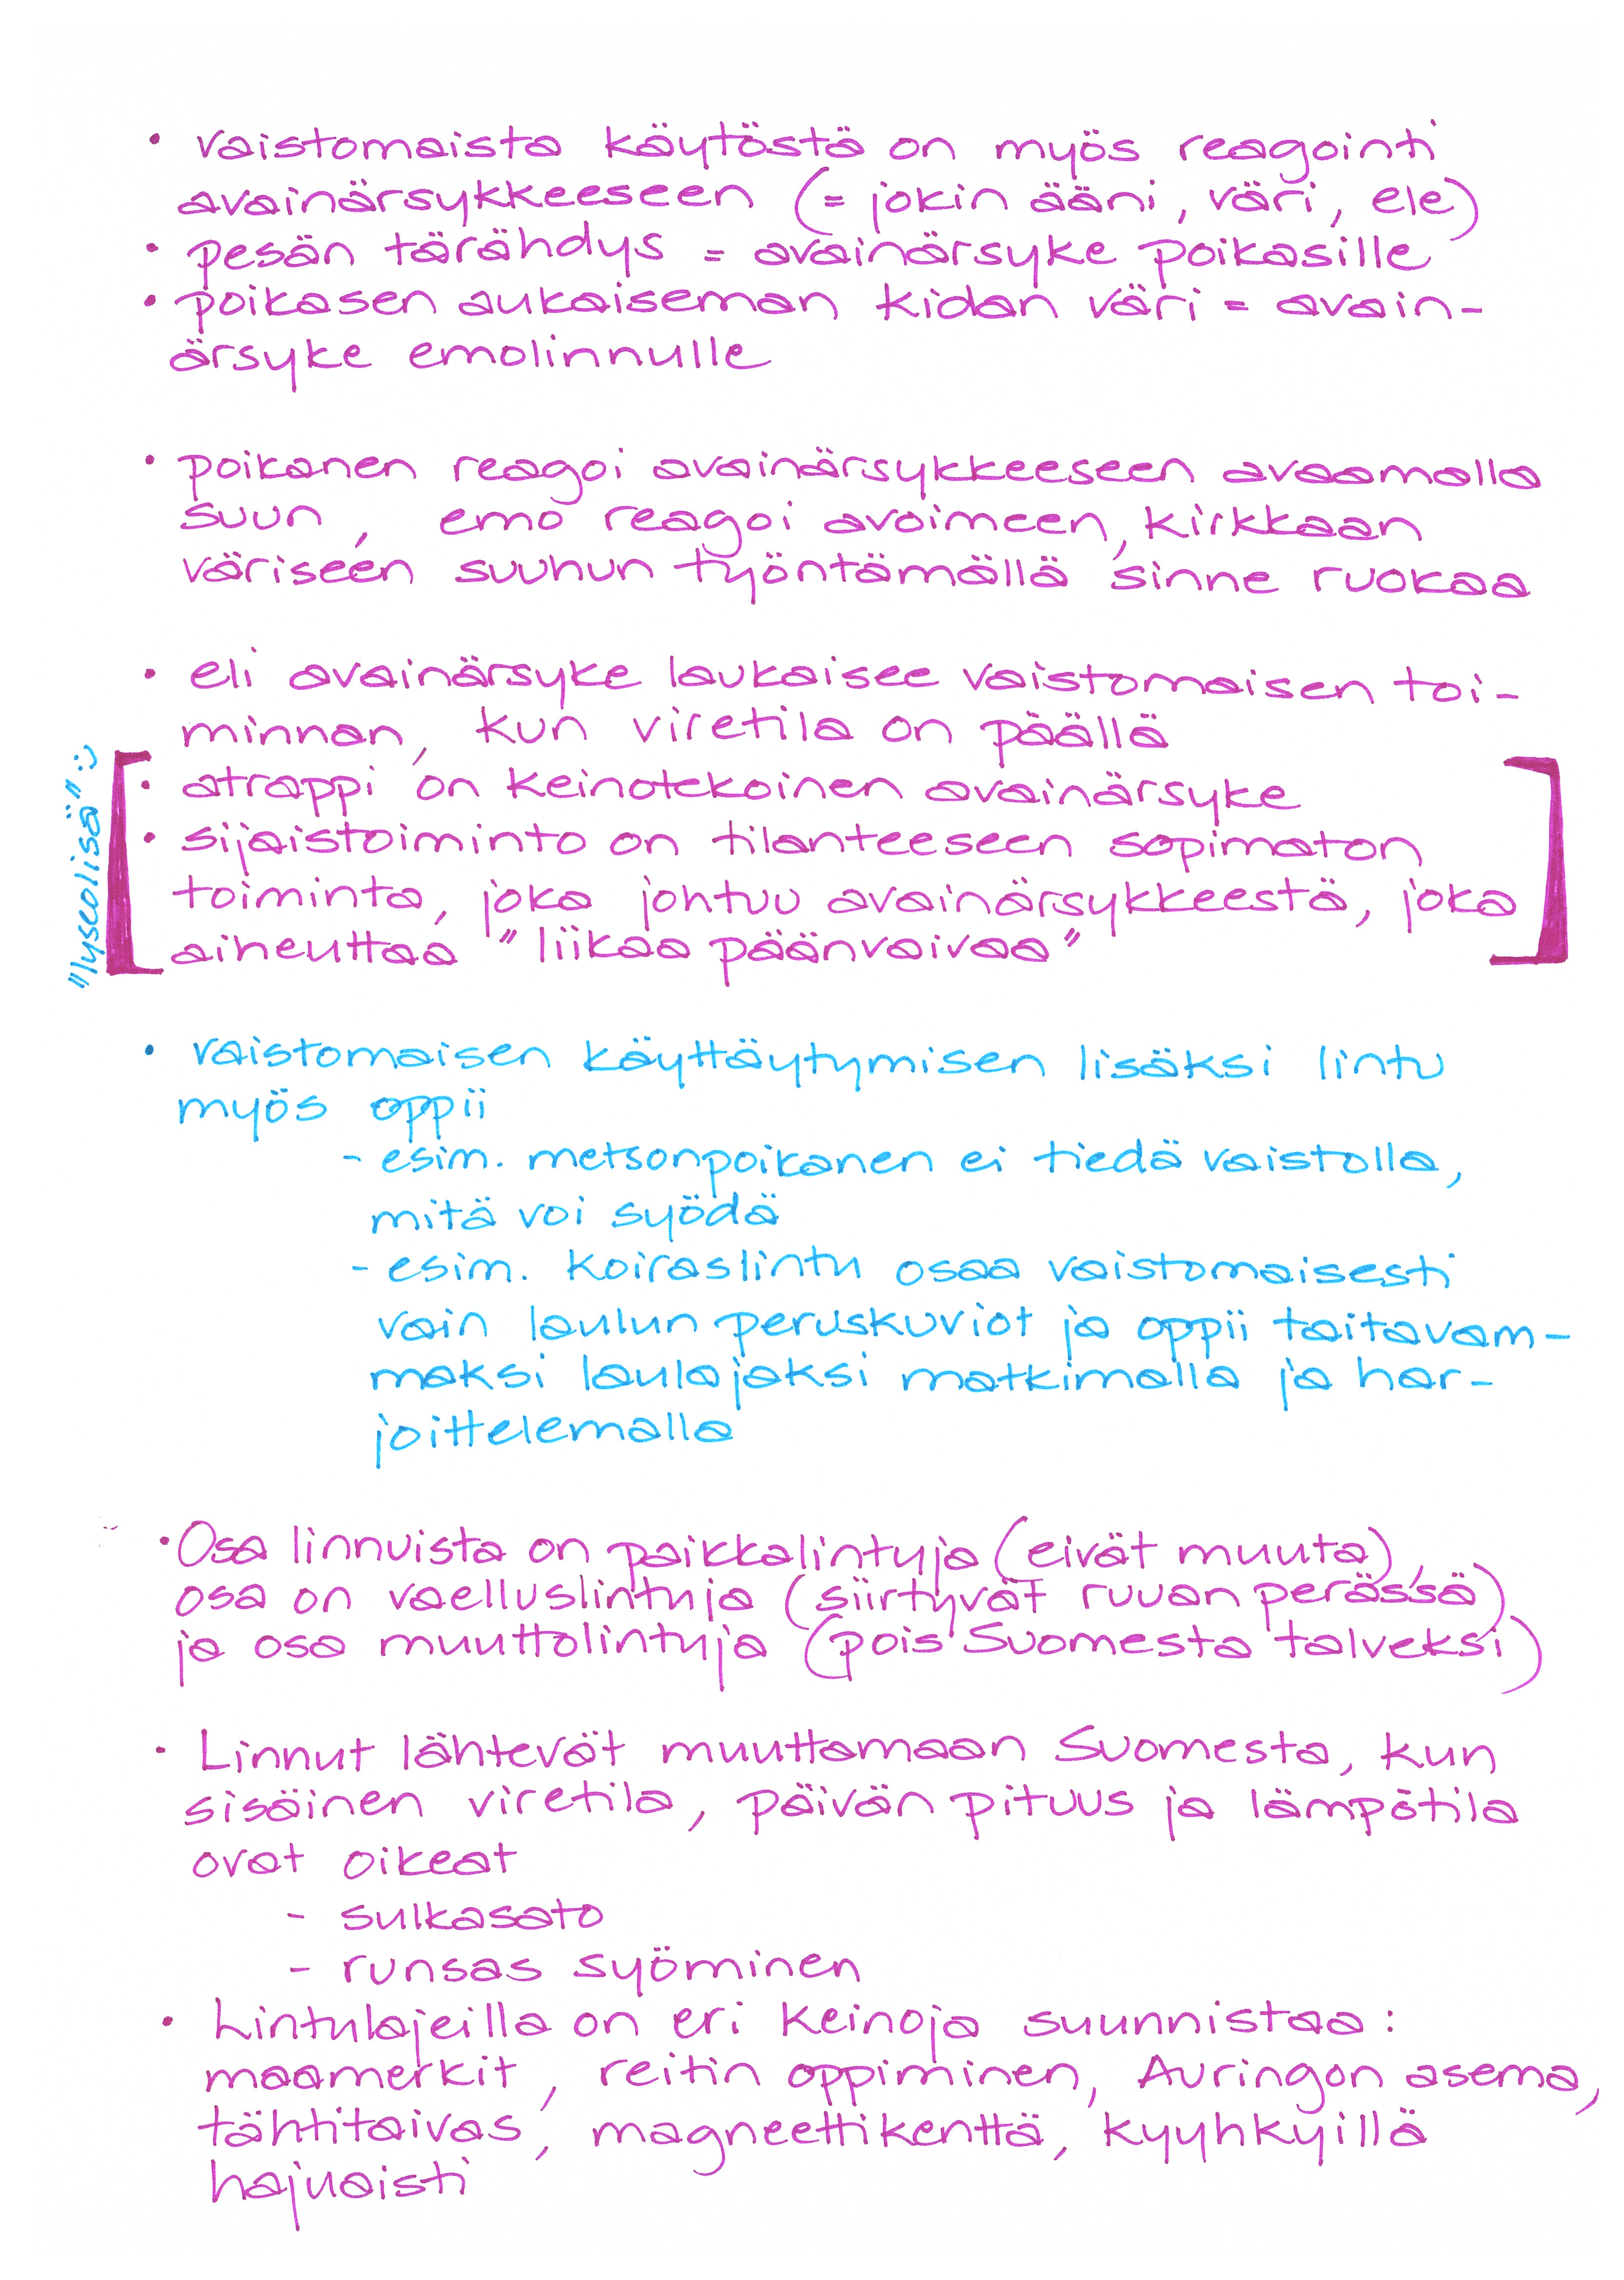 • vaistomaista käytöstä on myös reagointi
avainärsykkeeseen (= jokin ääni, väri, ele)
• pesän tärähdys = avainärsyke poikasille
• poikasen aukaiseman kidan väri = avain-
ärsyke emolinnulle
• poikanen reagoi avainärsykkeeseen avaamalla
suun, emo reagoi avoimeen, kirkkaan
väriseen suuhun työntämällä sinne ruokaa
• eli avainärsyke laukaisee vaistomaisen toi-
minnan, kun viretila on päällä
"lyseolisä" :)
• atrappi on keinotekoinen avainärsyke
• sijaistoiminto on tilanteeseen sopimaton
toiminta, joka johtuu avainärsykkeestä, joka
aiheuttaa "liikaa päänvaivaa"
• vaistomaisen käyttäytymisen lisäksi lintu
myös oppii
- esim. metsonpoikanen ei tiedä vaistolla,
mitä voi syödä
- esim. koiraslintu osaa vaistomaisesti
vain laulun peruskuviot ja oppii taitavam-
maksi laulajaksi matkimalla ja har-
joittelemalla
• Osa linnuista on paikkalintuja (eivät muuta),
osa on vaelluslintuja (siirtyvät ruuan perässä)
ja osa muuttolintuja (pois Suomesta talveksi)
• Linnut lähtevät muuttamaan Suomesta, kun
sisäinen viretila, päivän pituus ja lämpötila
ovat oikeat
- sulkasato
- runsas syöminen
• Lintulajeilla on eri keinoja suunnistaa:
maamerkit, reitin oppiminen, Auringon asema,
tähtitaivas, magneettikenttä, kyyhkyillä
hajuaisti